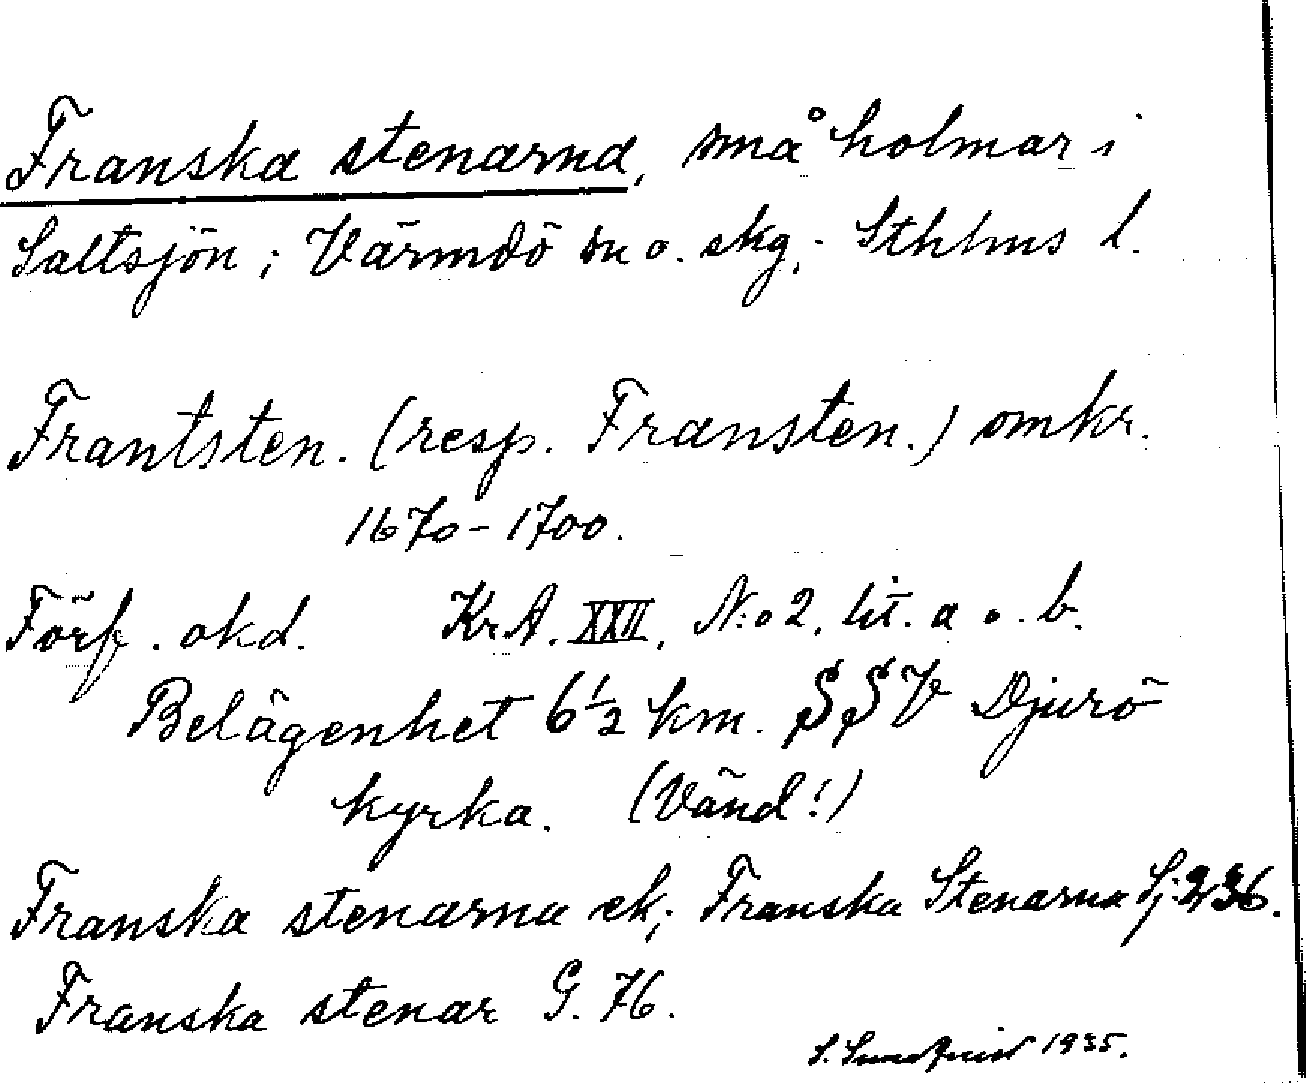 Franska stenarna, små holmar i
Saltsjön; Värmdö sn o. skg; Sthlms l.
Frantsten. (resp. Fransten.) omkr.
1670-1700.
Förf. okd. KrA. XXII, N:o 2, lit. a o. b.
Belägenhet 6 1/2 km. SSV Djurö
kyrka. (Vänd!)
Franska stenarna ek; Franska Stenarna Sj. 236.
Franska stenar G. 76.
S. Sundqvist 1935.